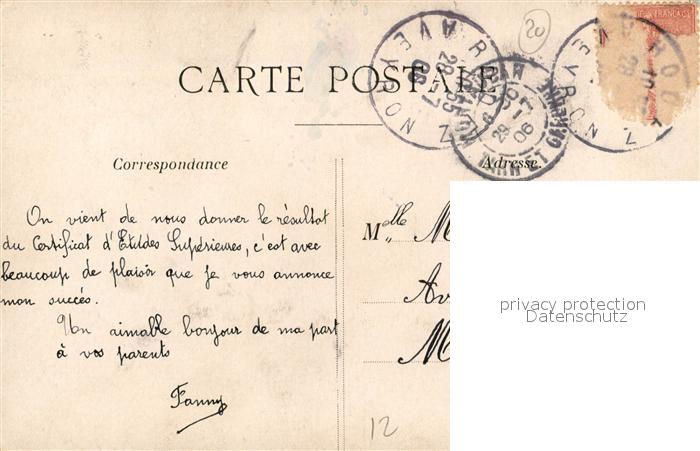 20
CARTE POSTALE
RODEZ AVEYRON 28-7 06
29-7 06
RODEZ AVEYRON
Correspondance
Adresse.
On vient de nous donner le résultat
du Certificat d'Etudes Supérieures, c'est avec
beaucoup de plaisir que je vous annonce
mon succès.
Un aimable bonjour de ma part
à vos parents
Fanny
Mlle M
Av
M
12
privacy protection
Datenschutz